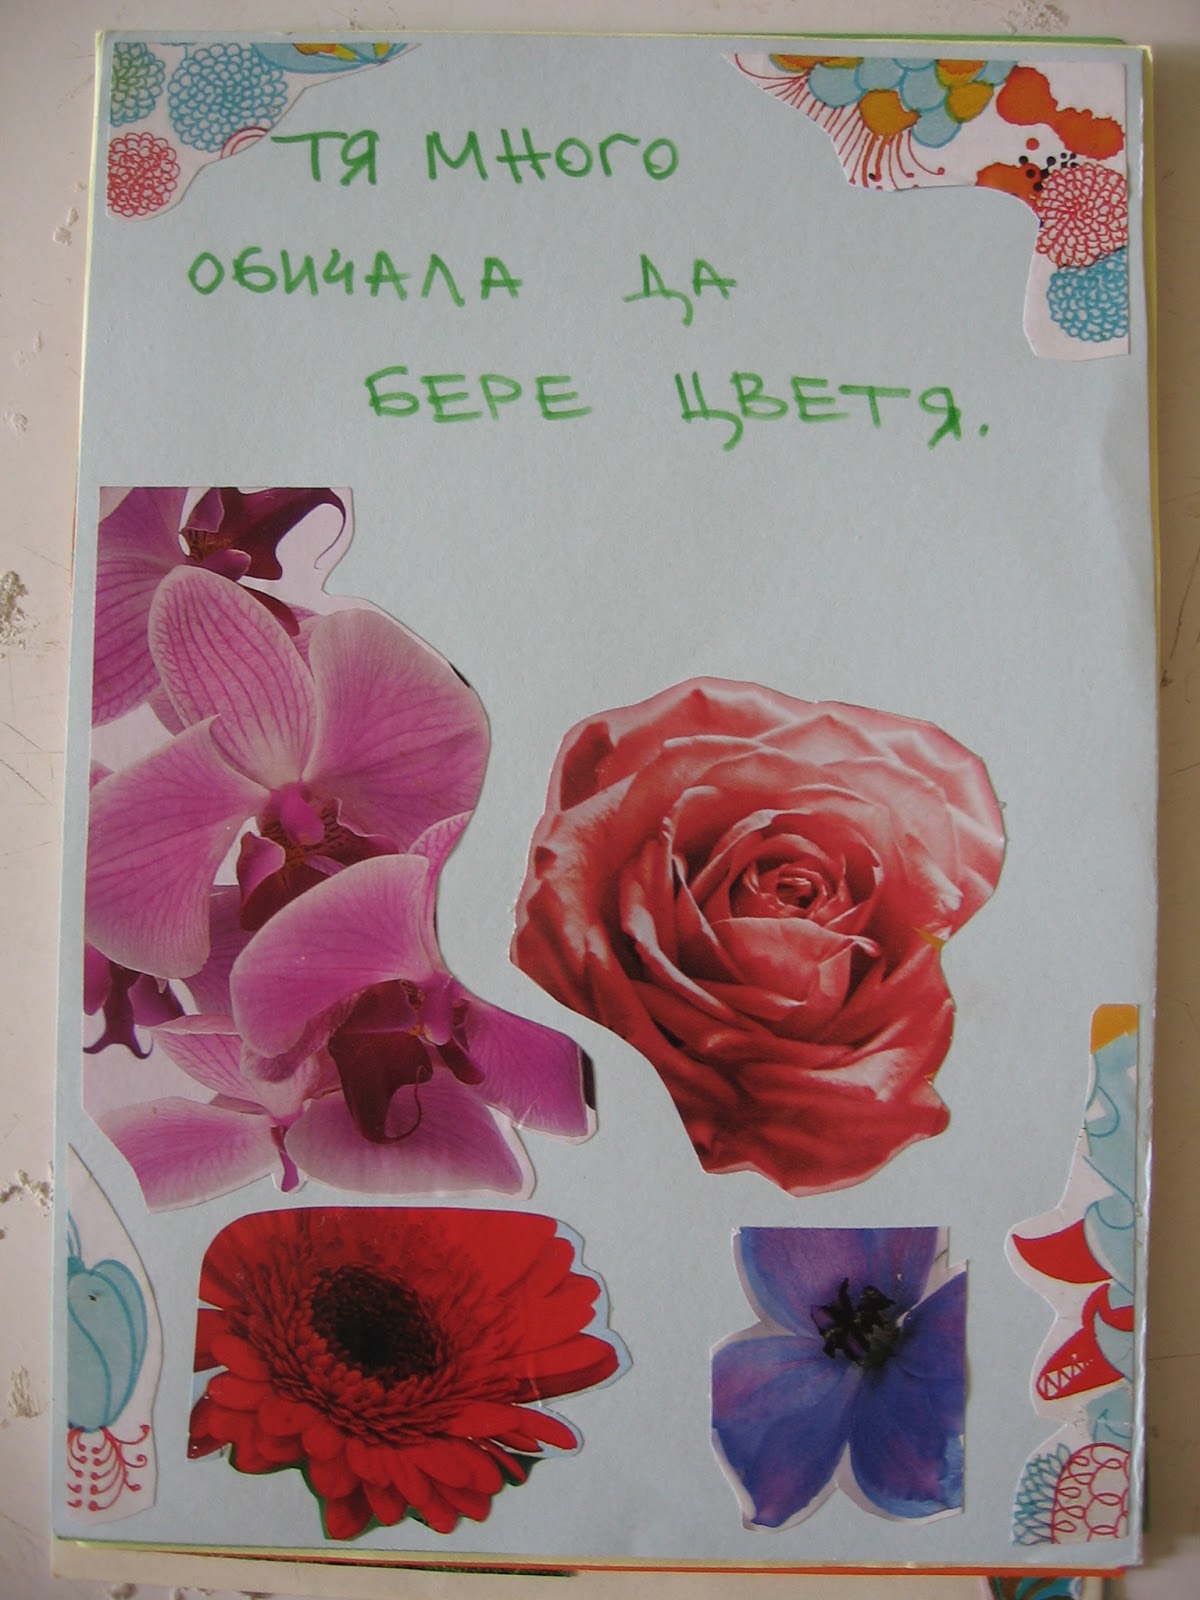 ТЯ МНОГО
ОБИЧАЛА ДА
БЕРЕ ЦВЕТЯ.